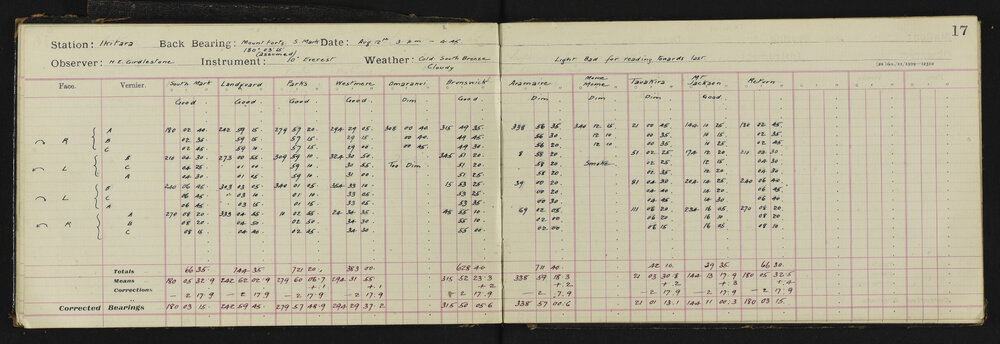 17
Station: Ikitara Back Bearing: Mount Forts S. Mark Date: Aug 12th 3 pm - 4.45
180° 03' 15"
(assumed)
Observer: H.E. Girdlestone Instrument: 10" Everest Weather: Cold South Breeze Light Bad for reading towards last
Cloudy
Face. Vernier. South Mark Landguard Parks Westmere Omaranui Brunswick Aramaire Mome Mome Tauakira Mt Jackson Return
Good Good Good Good Dim Good Dim Dim Dim Good
R A 180 02 40 242 59 15 279 57 20 294 29 05 308 00 40 315 49 35 338 56 35 340 12 15 21 00 45 144 10 25 180 02 45
B 02 35 59 15 57 15 29 15 00 40 49 45 56 30 12 10 00 30 10 15 02 35
C 02 45 59 10 57 15 29 00 00 45 49 30 56 20 12 10 00 35 10 25 02 45
L B 210 04 30 273 00 55 309 59 10 324 30 50 345 51 20 8 58 20 51 02 25 174 12 20 211 04 30
C 04 25 01 00 59 10 30 55 Too Dim 51 20 58 20 Smoke 02 25 12 15 04 30
A 04 30 01 05 59 10 31 00 51 25 58 20 02 35 12 20 04 30
L B 240 06 45 303 03 05 340 01 05 354 33 10 15 53 25 39 00 20 81 04 30 204 14 25 240 06 40
C 06 45 03 10 01 10 33 05 53 25 00 20 04 40 14 20 06 45
A 06 45 03 15 01 15 33 05 53 35 00 30 04 45 14 30 06 40
R A 270 08 20 333 04 55 10 02 55 24 34 35 45 55 10 69 02 05 111 06 20 234 16 05 270 08 20
B 08 20 04 50 02 50 34 30 55 10 02 00 06 20 16 10 08 20
C 08 15 04 40 02 45 34 30 55 00 02 00 06 15 16 05 08 10
Totals 66 35 744 35 721 20 383 00 628 40 711 40 42 10 39 35 66 30
Means 180 05 32.9 242 62 02.9 279 60 06.7 294 31 55 315 52 23.3 338 59 18.3 21 03 30.8 144 13 17.9 180 05 32.5
Corrections +.1 +.1 +.2 +.2 +.2 +.3 +.4
- 2 17.9 - 2 17.9 - 2 17.9 - 2 17.9 2 17.9 - 2 17.9 - 2 17.9 - 2 17.9
Corrected Bearings 180 03 15 242 59 45 279 57 48.9 294 29 37.2 315 50 05.6 338 57 00.6 21 01 13.1 144 11 00.3 180 03 15